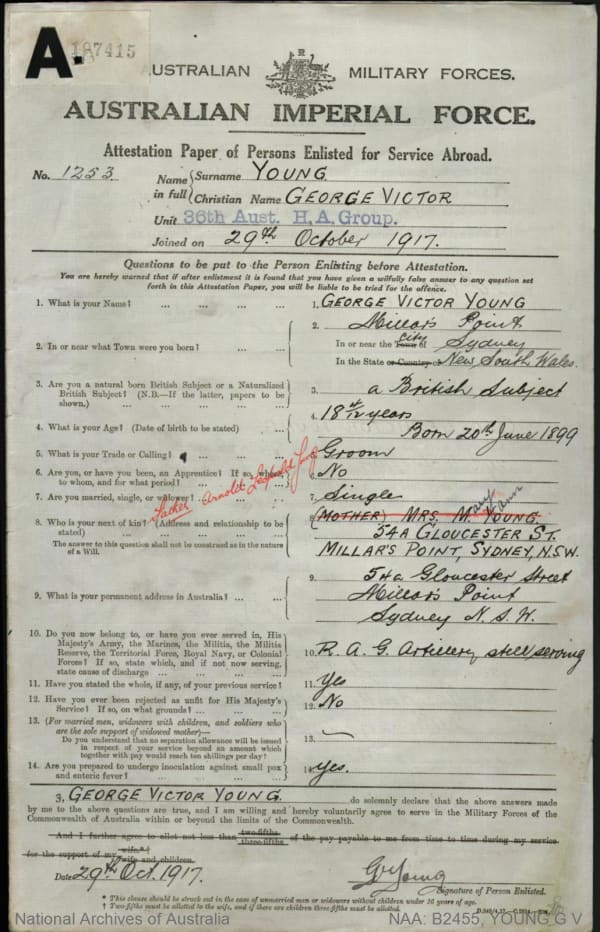 A. 187415
AUSTRALIAN MILITARY FORCES.
AUSTRALIAN IMPERIAL FORCE.
Attestation Paper of Persons Enlisted for Service Abroad.
No. 1253 Name in full { Surname YOUNG
Christian Name GEORGE VICTOR
Unit 36th Aust. H.A. Group.
Joined on 29th October 1917.
Questions to be put to the Person Enlisting before Attestation.
You are hereby warned that if after enlistment it is found that you have given a wilfully false answer to any question set
forth in this Attestation Paper, you will be liable to be tried for the offence.
1. What is your Name? ... ... ... 1. GEORGE VICTOR YOUNG
2. In or near what Town were you born? ... 2. Millar's Point
In or near the Town of City Sydney
In the State or Country of New South Wales.
3. Are you a natural born British Subject or a Naturalized
British Subject? (N.B.—If the latter, papers to be
shown.) ... ... ... 3. a British Subject
4. What is your Age? (Date of birth to be stated) ... 4. 18 4/12 years
Born 20th June 1899
5. What is your Trade or Calling? ... 5. Groom
6. Are you, or have you been, an Apprentice? If so, where,
to whom, and for what period? ... 6. No
7. Are you married, single, or widower? ... 7. Single
Father Arnold Leopold Young
8. Who is your next of kin? (Address and relationship to be
stated) ... ... 8. (MOTHER) MRS. Mary Ann YOUNG.
The answer to this question shall not be construed as in the nature
of a Will.
54A GLOUCESTER ST.
MILLAR'S POINT, SYDNEY, N.S.W.
9. What is your permanent address in Australia? ... ... 9. 54a Gloucester Street
Millar's Point
Sydney N.S.W.
10. Do you now belong to, or have you ever served in, His
Majesty's Army, the Marines, the Militia, the Militia
Reserve, the Territorial Force, Royal Navy, or Colonial
Forces? If so, state which, and if not now serving,
state cause of discharge ... ... ... 10. R.A.G. Artillery, still serving
11. Have you stated the whole, if any, of your previous service? 11. Yes
12. Have you ever been rejected as unfit for His Majesty's
Service? If so, on what grounds? ... ... 12. No
13. (For married men, widowers with children, and soldiers who
are the sole support of widowed mother)—
Do you understand that no separation allowance will be issued
in respect of your service beyond an amount which
together with pay would reach ten shillings per day? 13. —
14. Are you prepared to undergo inoculation against small pox
and enteric fever? ... ... ... 14. Yes.
I, GEORGE VICTOR YOUNG do solemnly declare that the above answers made
by me to the above questions are true, and I am willing and hereby voluntarily agree to serve in the Military Forces of the
Commonwealth of Australia within or beyond the limits of the Commonwealth.
And I further agree to allot not less than two-fifths three-fifths of the pay payable to me from time to time during my service
for the support of my wife.* wife and children.
Date 29th Oct. 1917. GVYoung
Signature of Person Enlisted.
* This clause should be struck out in the case of unmarried men or widowers without children under 16 years of age.
† Two-fifths must be allotted to the wife, and if there are children three-fifths must be allotted.
National Archives of Australia NAA: B2455, YOUNG G V